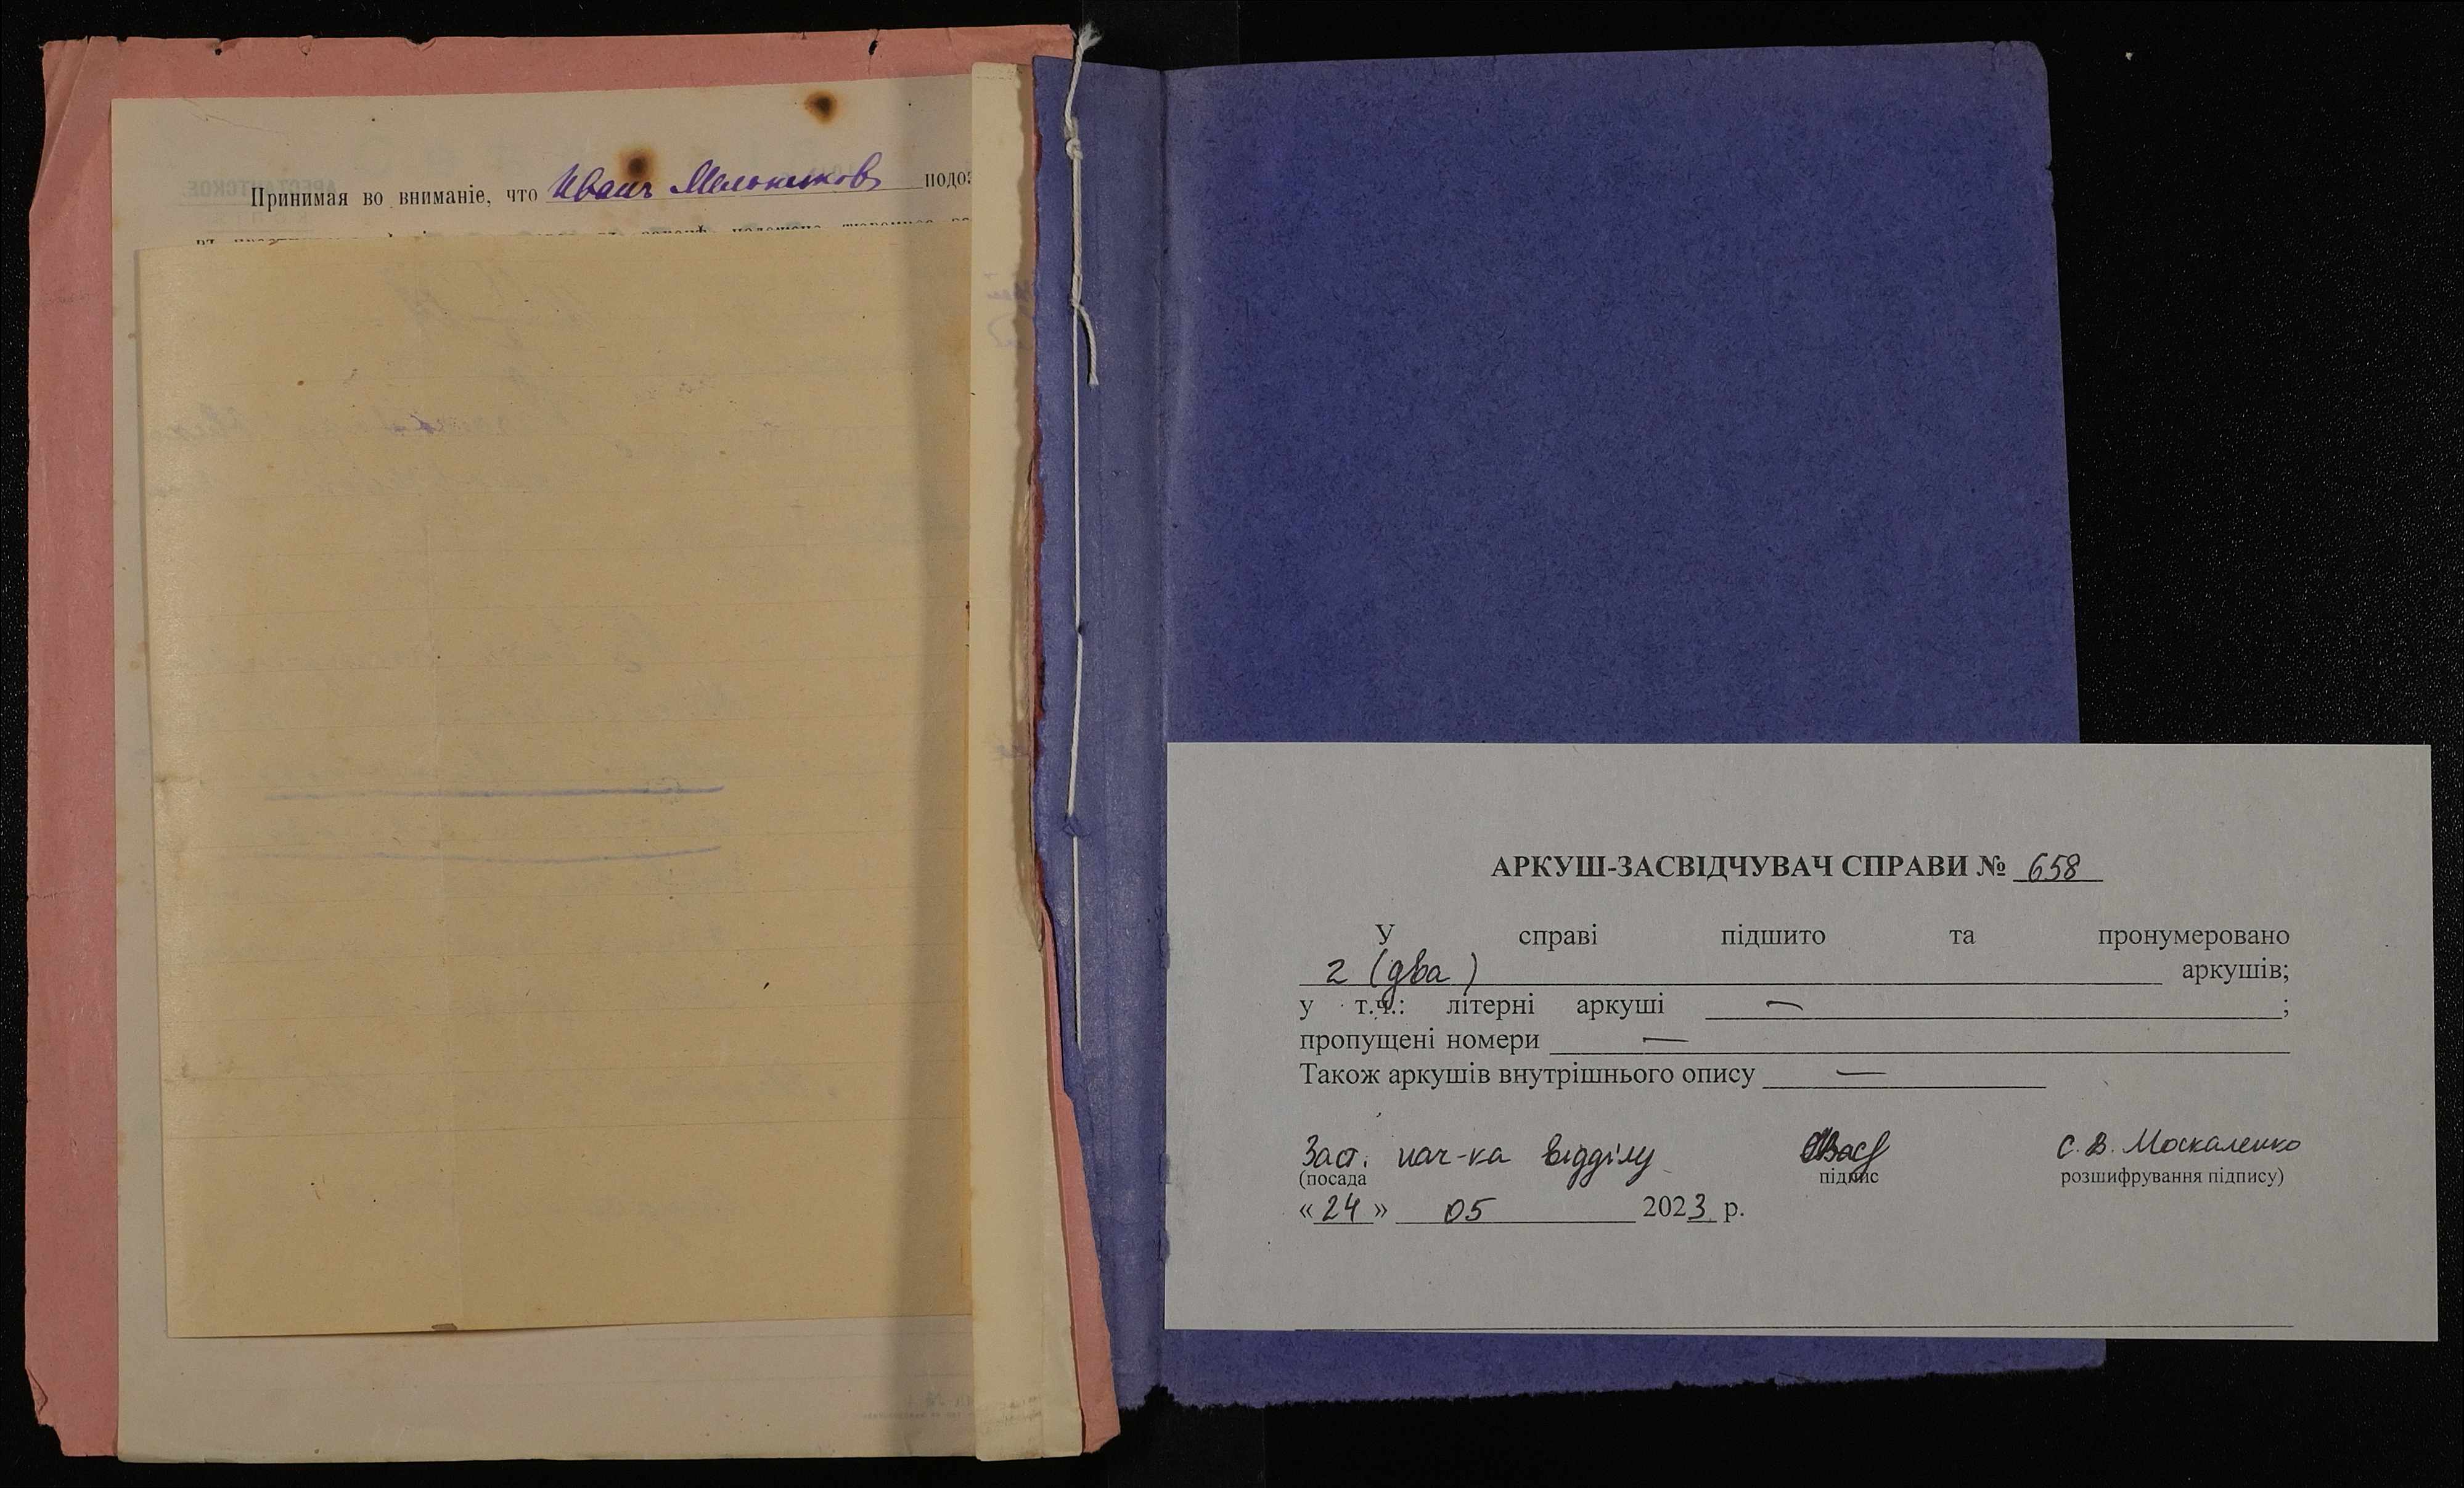 Принимая во вниманіе, что Иванъ Мельников подоз
АРКУШ-ЗАСВІДЧУВАЧ СПРАВИ № 658
У справі підшито та пронумеровано
2 (два) аркушів;
у т.ч.: літерні аркуші — ;
пропущені номери —
Також аркушів внутрішнього опису —
Заст. нач-ка відділу С.В. Москаленко
(посада підпис розшифрування підпису)
«24» 05 2023 р.